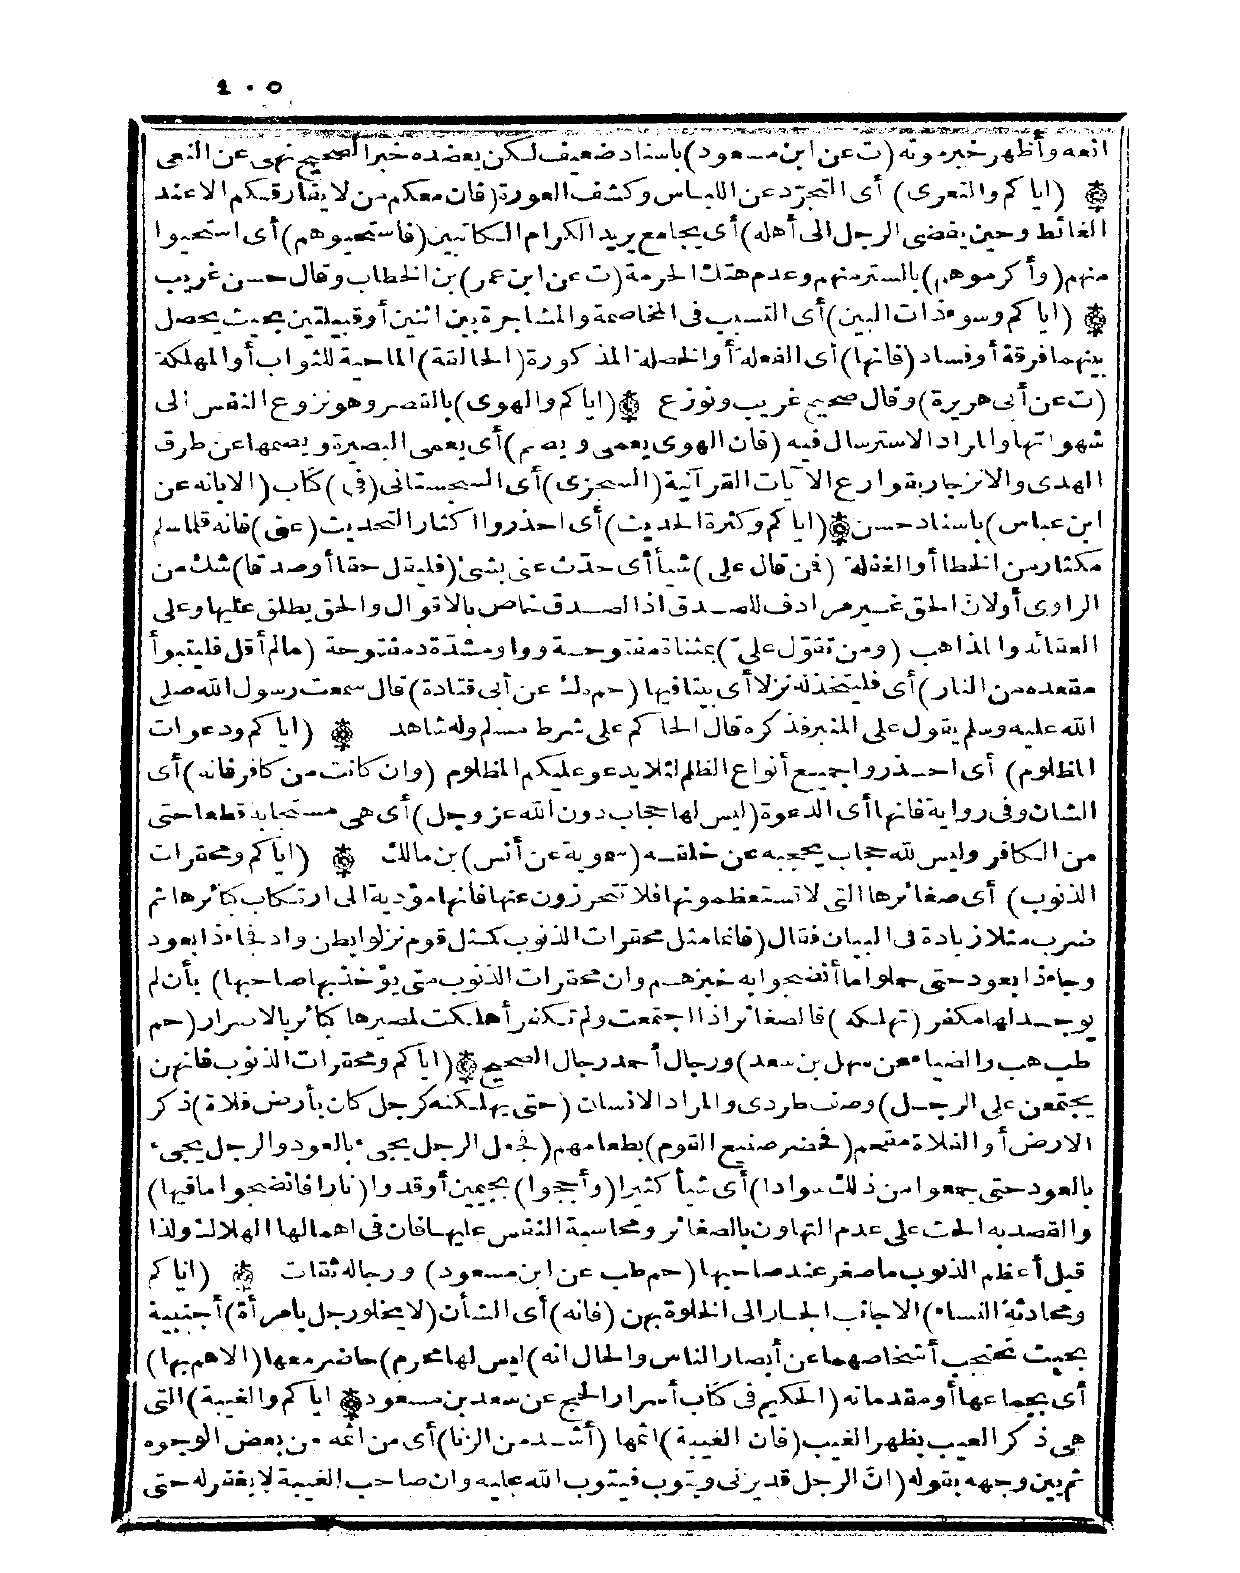 ٤٠٥
انعه وأظهر خبر موته (ت عن ابن مسعود) باسناد ضعيف لكن يعضده خبر الصحيح نهى عن النعى
(اياكم والتعرى) أى التجرّد عن اللباس وكشف العورة (فان معكم من لا يفارقكم الا عند
الغائط وحين يفضى الرجل الى أهله) أى يجامع يريد الكرام الكاتبين (فاستحيوهم) أى استحيوا
منهم (وأكرموهم) بالستر منهم وعدم هتك الحرمة (ت عن ابن عمر) بن الخطاب وقال حسن غريب
(اياكم وسوء ذات البين) أى التسبب فى المخاصمة والمشاجرة بين اثنين أو قبيلتين بحيث يحصل
بينهما فرقة أو فساد (فانها) أى الفعلة أو الخصلة المذكورة (الحالقة) الماحية للثواب أو المهلكة
(ت عن أبى هريرة) وقال صحيح غريب ونوزع (اياكم والهوى) بالقصر وهو نزوع النفس الى
شهواتها والمراد الاسترسال فيه (فان الهوى يعمى ويصم) أى يعمى البصيرة ويصمها عن طرق
الهدى والانزجار بقوارع الآيات القرآنية (السجزى) أى السجستانى (فى) كتاب (الابانه عن
ابن عباس) باسناد حسن (اياكم وكثرة الحديث) أى احذروا اكثار التحديث (عنى) فانه قلما سلم
مكثار من الخطا أو الغفلة (فمن قال على) شيأ أى حدث عنى بشئ (فليقل حقا أو صدقا) شك من
الراوى أو لان الحق غير مرادف للصدق اذ الصدق خاص بالاقوال والحق يطلق عليها وعلى
العقائد والمذاهب (ومن تقوّل علىّ) بمثناة مفتوحة وواو مشدّدة مفتوحة (مالم أقل فليتبوأ
مقعده من النار) أى فليتخذ له نزلا أى بيتا فيها (حم ه ك عن أبى قتادة) قال سمعت رسول الله صلى
الله عليه وسلم يقول على المنبر فذكره قال الحاكم على شرط مسلم وله شاهد (اياكم ودعوات
المظلوم) أى احذروا جميع أنواع الظلم لئلا يدعو عليكم المظلوم (وان كانت من كافر فانه) أى
الشان وفى رواية فانها أى الدعوة (ليس لها حجاب دون الله عز وجل) أى هى مستجابة قطعا حتى
من الكافر وليس لله حجاب يحجبه عن خلقه (سمويه عن أنس) بن مالك (اياكم ومحقرات
الذنوب) أى صغائرها التى لا تستعظمونها فلا تتحرزون عنها فانها مؤدية الى ارتكاب كبائرها ثم
ضرب مثلا زيادة فى البيان فقال (فانما مثل محقرات الذنوب كمثل قوم نزلوا بطن واد فجاء ذا بعود
وجاء ذا بعود حتى حملوا ما أنضجوا به خبزهم وان محقرات الذنوب متى يؤخذ بها صاحبها) بأن لم
يوجد لها مكفر (تهلكه) فالصغائر اذا اجتمعت ولم تكفر أهلكت لمصيرها كبائر بالاسرار (حم
طب هب والضياء عن سهل بن سعد) ورجال أحمد رجال الصحيح (اياكم ومحقرات الذنوب فانهن
يجتمعن على الرجل) وصف طردى والمراد الانسان (حتى يهلكنه كرجل كان بأرض فلاة) ذكر
الارض أو الفلاة مقحم (فحضر صنيع القوم) بطعامهم (فجعل الرجل يجىء بالعود والرجل يجىء
بالعود حتى جمعوا من ذلك سوادا) أى شيأ كثيرا (وأججوا) بجيمين أوقدوا (نارا فانضجوا ما فيها)
والقصد به الحث على عدم التهاون بالصغائر ومحاسبة النفس عليها فان فى اهمالها الهلاك ولذا
قيل أعظم الذنوب ما صغر عند صاحبها (حم طب عن ابن مسعود) ورجاله ثقات (اياكم
ومحادثة النساء) الاجانب الجار الى الخلوة بهن (فانه) أى الشأن (لا يخلو رجل بامرأة) أجنبية
بحيث تحتجب أشخاصهما عن أبصار الناس والحال انه (ليس لها محرم) حاضر معها (الا هم بها)
أى بجماعها أو مقدماته (الحكيم فى كتاب أسرار الحج عن سعد بن مسعود اياكم والغيبة) التى
هى ذكر العيب بظهر الغيب (فان الغيبة) اثمها (أشد من الزنا) أى من اثمه من بعض الوجوه
ثم بين وجهه بقوله (انّ الرجل قد يزنى ويتوب فيتوب الله عليه وان صاحب الغيبة لا يغفر له حتى